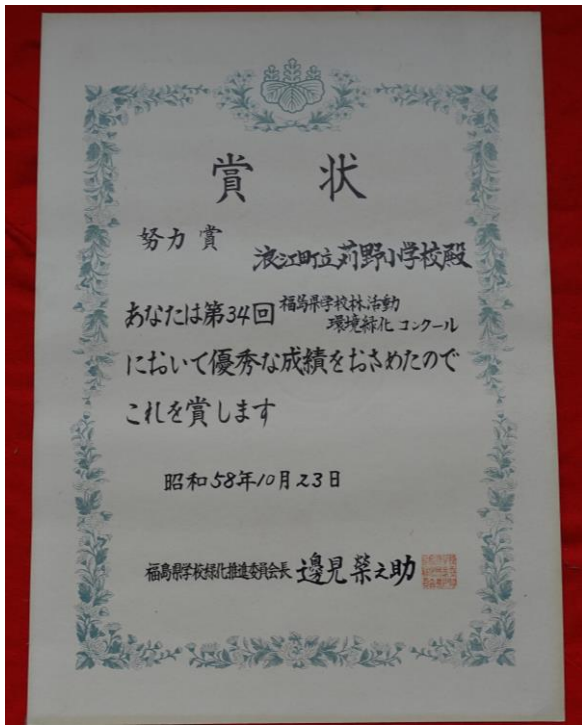 賞状
努力賞
浪江町立苅野小学校殿
あなたは第34回 福島県学校林活動
環境緑化コンクール
において優秀な成績をおさめたので
これを賞します
昭和58年10月23日
福島県学校緑化推進委員会長 邊見榮之助